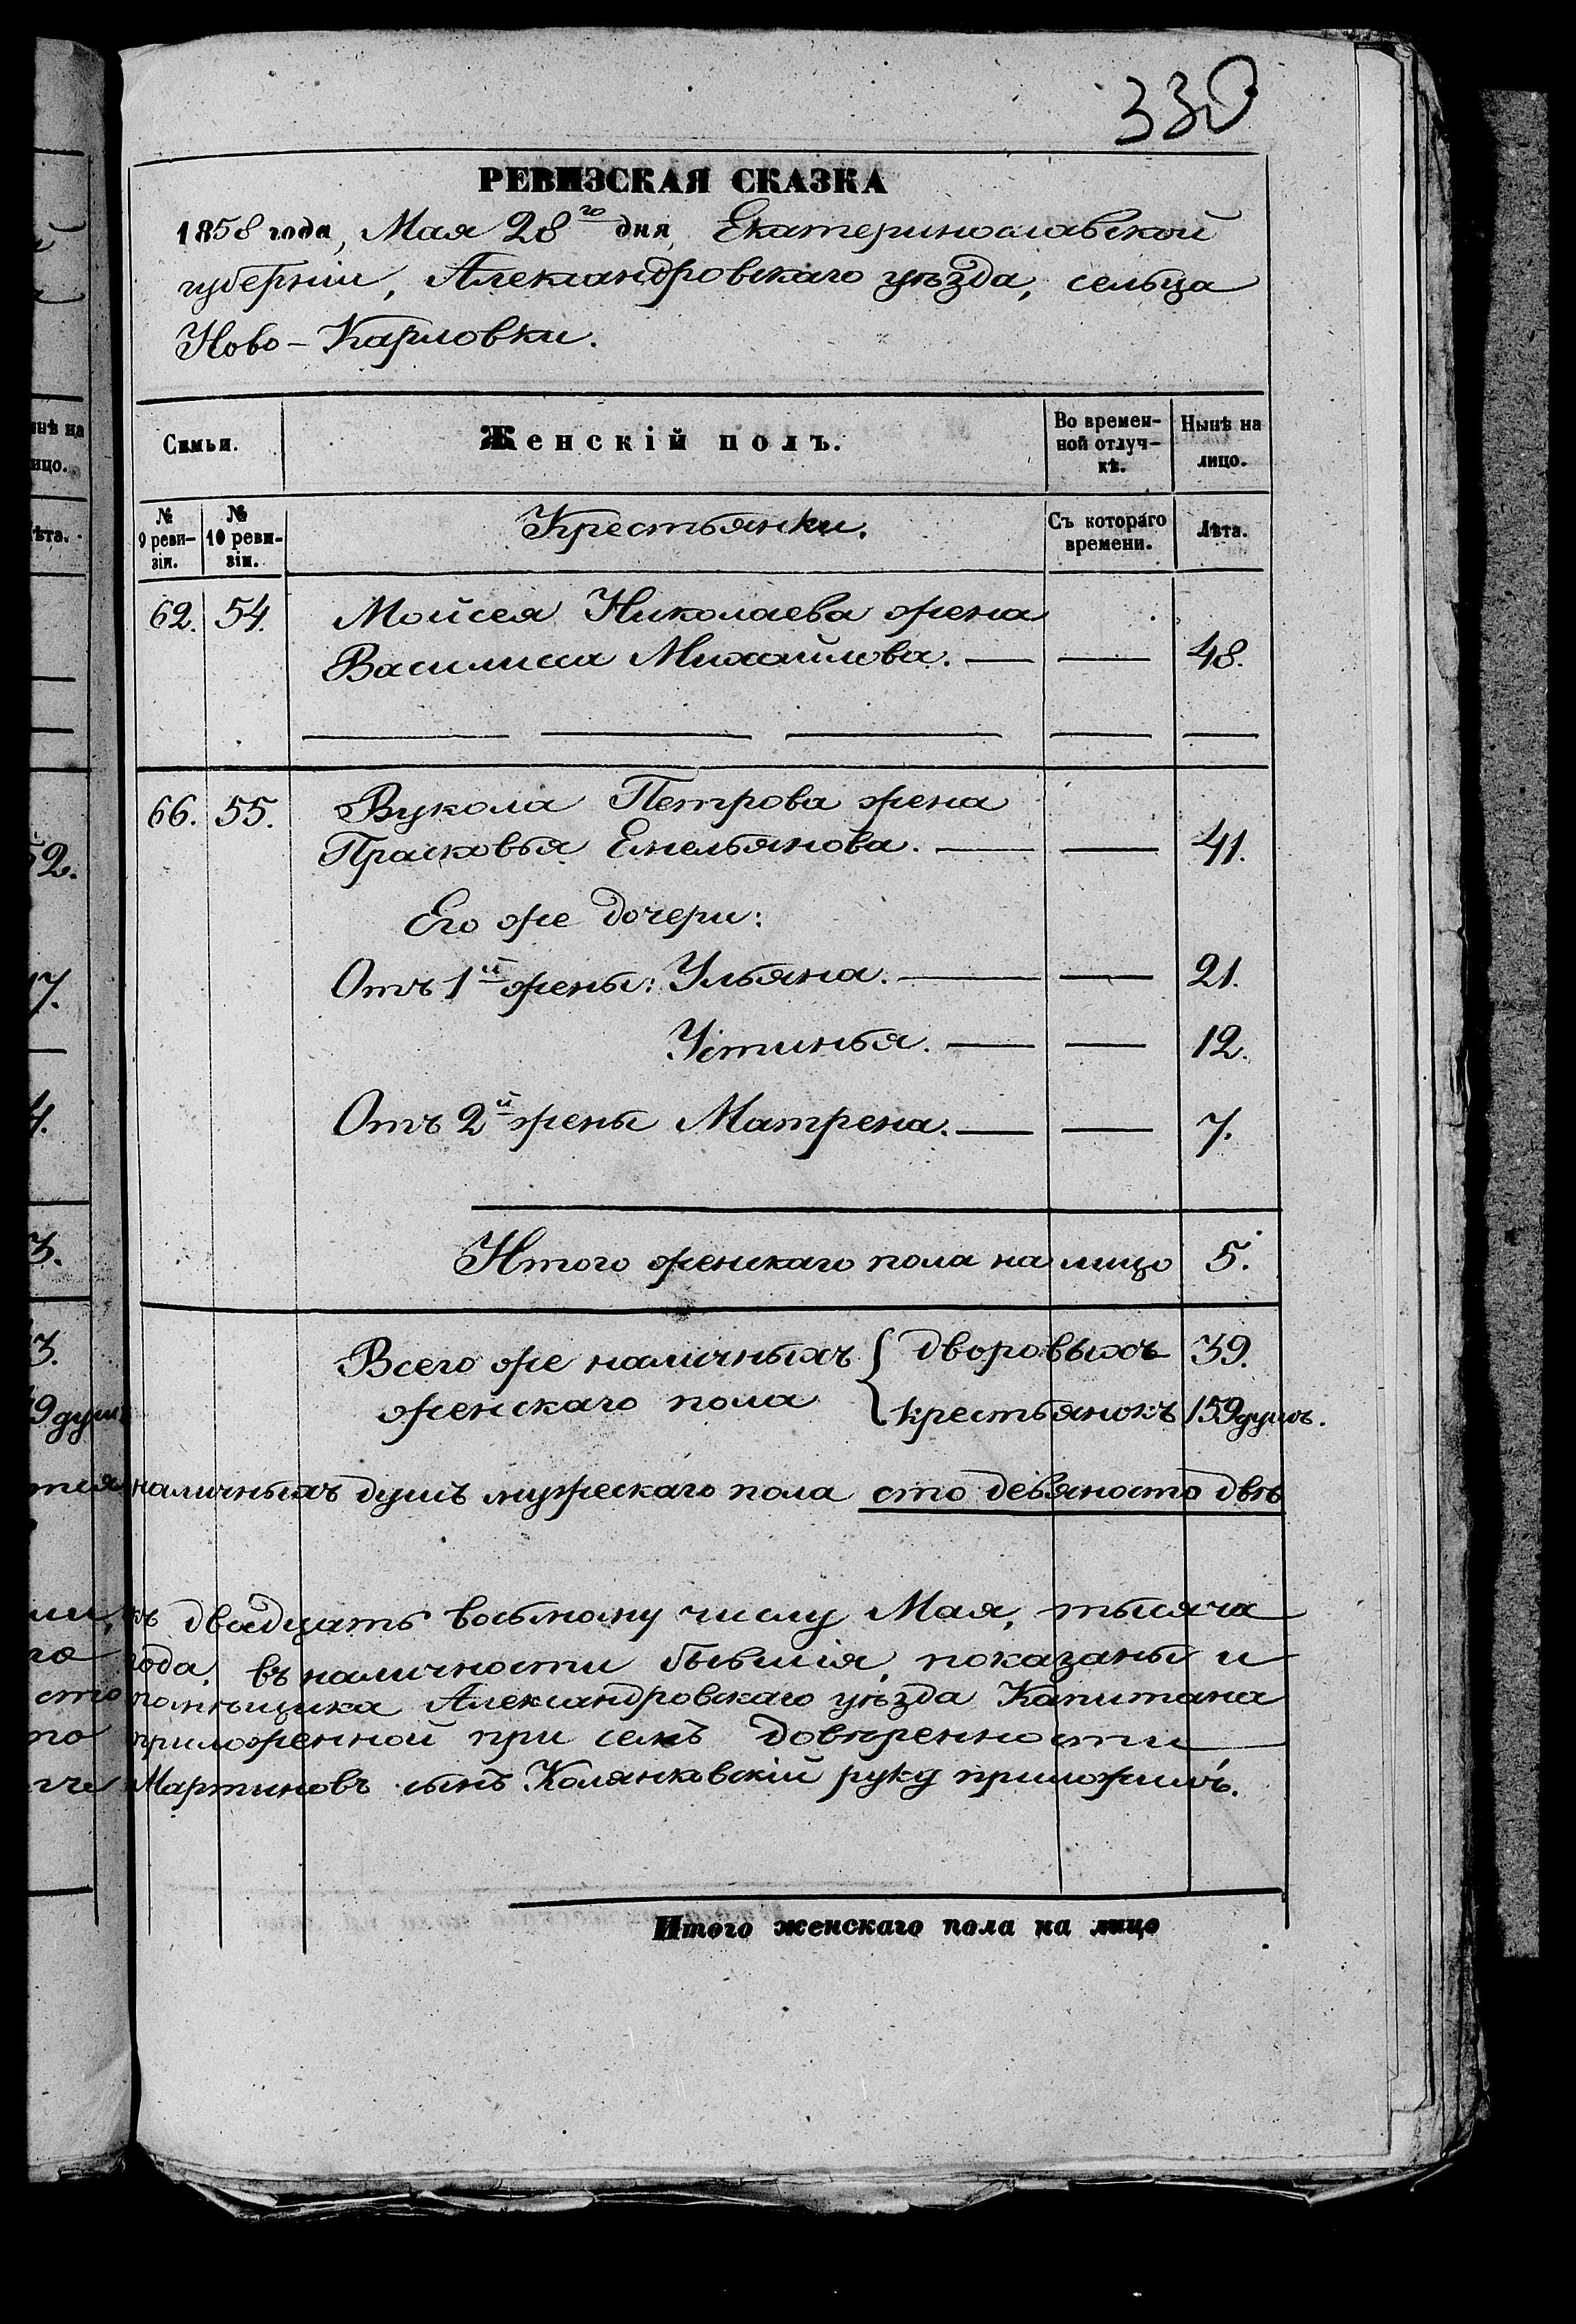 330
РЕВИЗСКАЯ СКАЗКА
1858 года, Мая 28го дня, Екатеринославской
губерніи, Александровскаго уѣзда, сельца
Ново-Карловки.
Семьи.
Женскій полъ.
Во времен-
ной отлуч-
кѣ.
Нынѣ на
лицо.
№
9 реви-
зіи.
№
10 реви-
зіи.
Крестьянки.
Съ котораго
времени.
Лѣта.
62. 54. Мойсея Николаева жена
Василиса Михайлова. — — 48.
66. 55. Вукола Петрова жена
Прасковья Емельянова. — — 41.
Его же дочери:
Отъ 1й жены: Ульяна. — — 21.
Устинья. — — 12.
Отъ 2й жены Матрена. — — 7.
Итого женскаго пола на лицо 5.
Всего же наличныхъ { дворовыхъ 39.
женскаго пола { крестьянокъ 159 душъ.
наличныхъ душъ мужескаго пола сто девяносто двѣ
къ двадцать восьмому числу Мая, тысяча
года, въ наличности бывшія, показаны и
помѣщика Александровскаго уѣзда Капитана
приложенной при семъ довѣренности
Мартиновъ сынъ Колянковскій руку приложилъ.
Итого женскаго пола на лицо